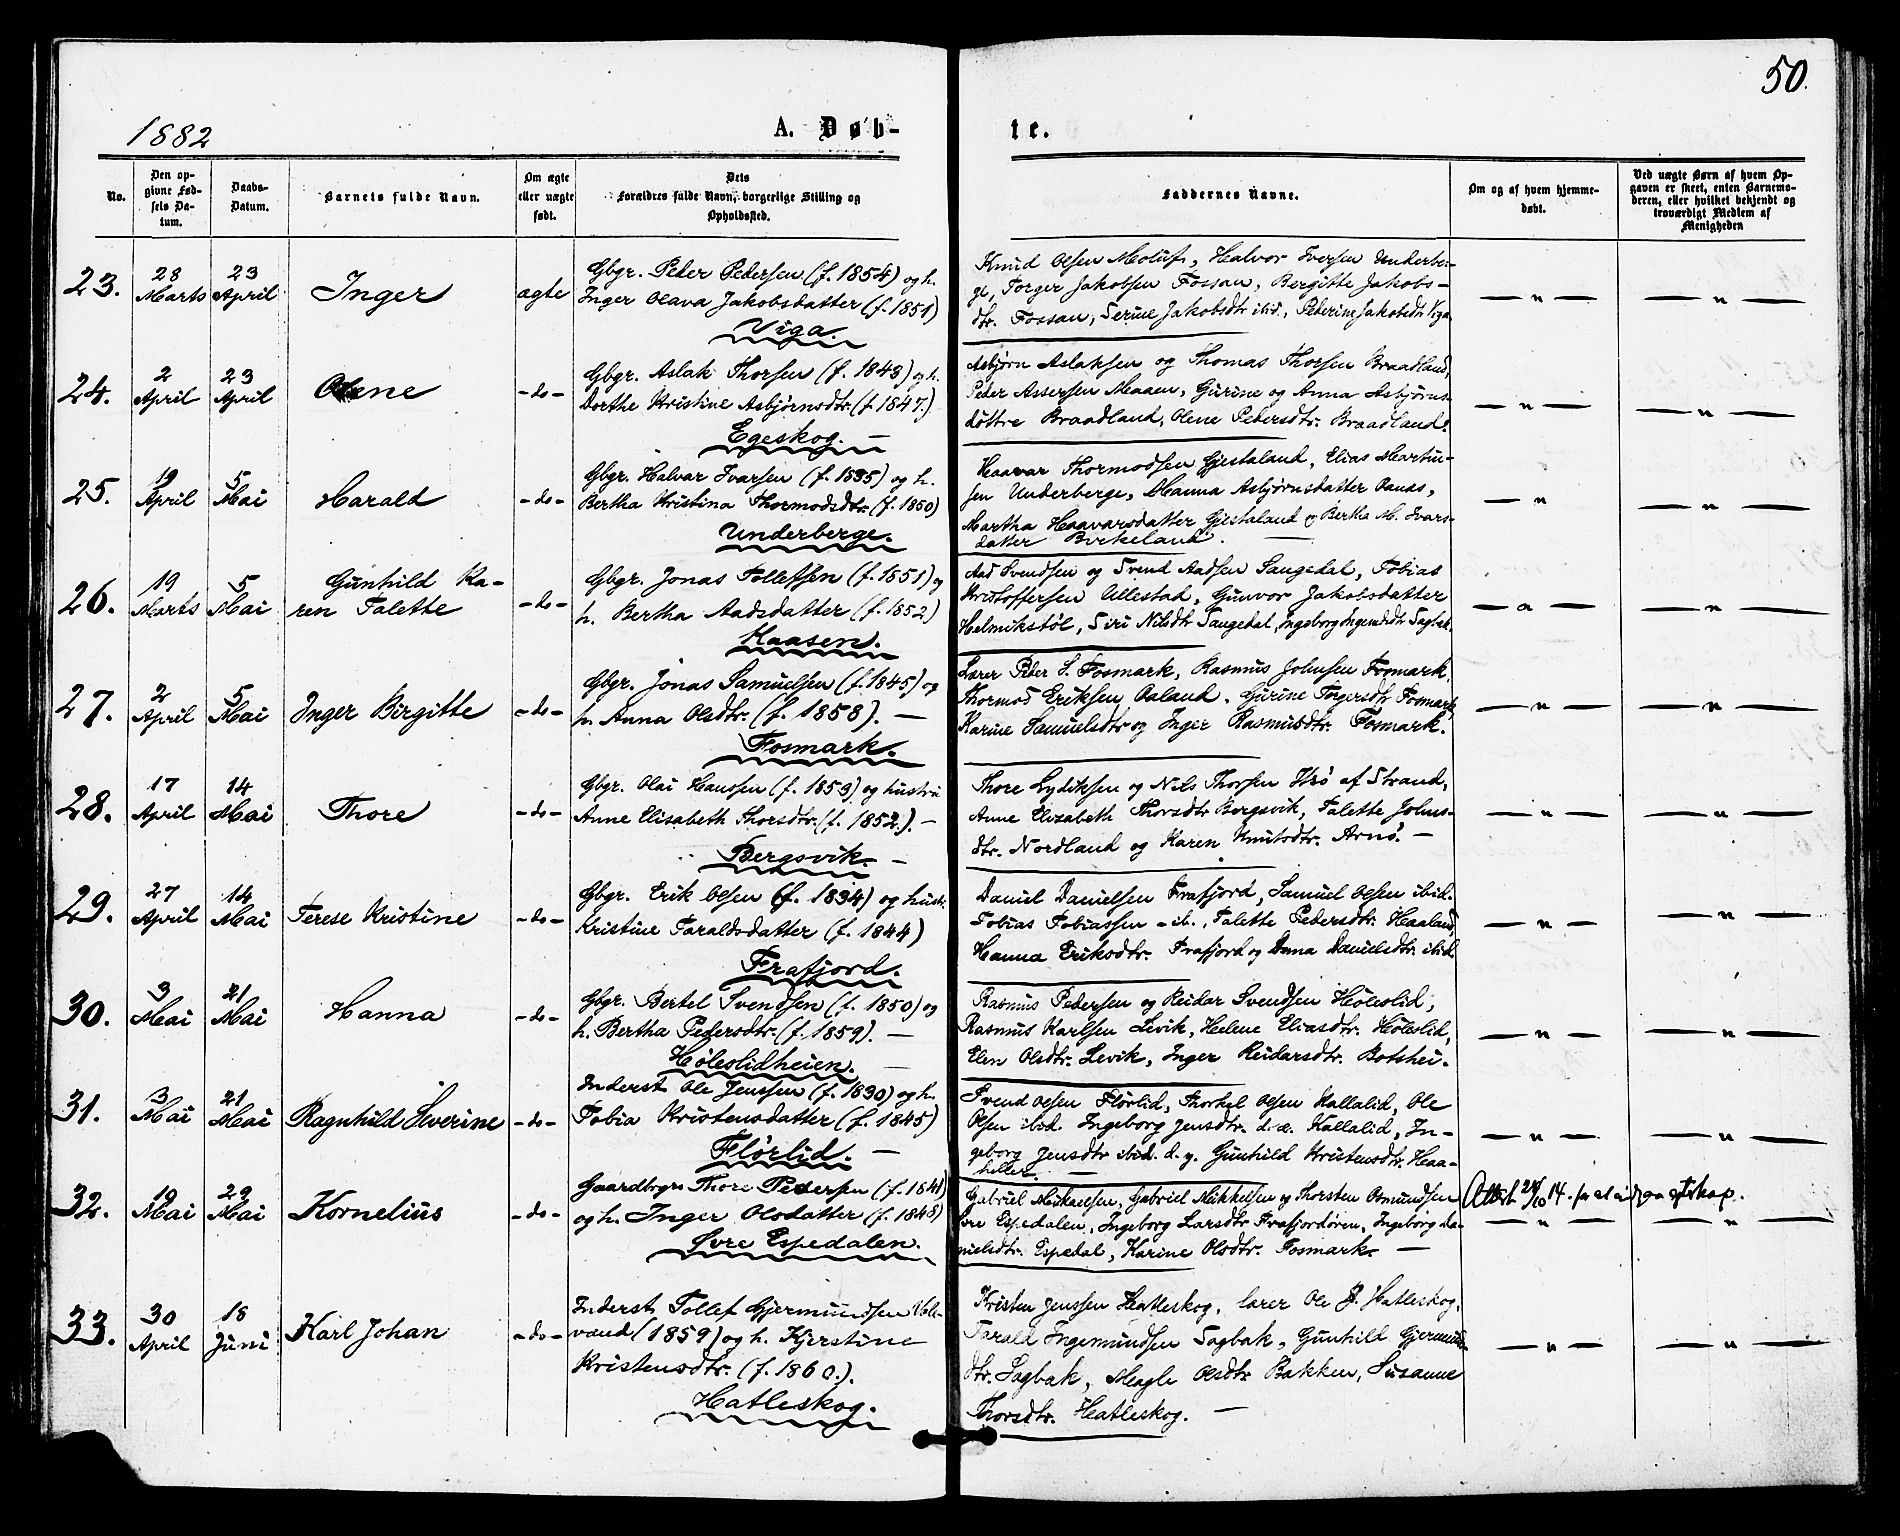 50.
1882
A. Døb-
te.
No.
Den op-
givne Fød-
sels Da-
tum.
Daabs-
Datum.
Barnets fulde Navn.
Om ægte
eller uægte
født.
Dets
Forældres fulde Navn, borgerlige Stilling og
Opholdssted.
Faddernes Navne.
Om og af hvem hjemme-
døbt.
Ved uægte Børn af hvem Op-
gaven er skeet, enten Barnemo-
deren, eller hvilket bekjendt og
troværdigt Medlem af
Menigheden
23.
28
Marts
23
April
Inger
ægte
Gbgr. Peder Pedersen (f. 1854) og h.
Inger Olava Jakobsdatter (f. 1851)
Viga.
Knud Olsen Moluf, Halvor Iversen Underber-
ge, Torger Jakobsen Fossan, Bergitte Jakobs-
dtr. Fossan, Serine Jakobsdtr ibid., Pederine Jakobsdtr Viga
— " — — " —
24.
2
April
23
April
Olene
- do -
Gbgr. Aslak Thorsen (f. 1843) og h.
Dorthe Kristine Asbjørnsdtr. (f. 1847.)
Egeskog. —
Asbjørn Aslaksen og Thomas Thorsen Braadland,
Peder Assersen Maaen, Gurine og Anna Asbjørns-
døttre Braadland, Olene Pedersdtr. Braadland.
— " — — " —
25.
19
April
5
Mai
Harald
- do -
Gbgr. Halvar Ivarsen (f. 1835) og h.
Bertha Kristina Thormodsdtr. (f. 1850)
Underberge.
Haavar Thormodsen Gjestaland, Elias Martin-
sen Underberge, Hanna Asbjørnsdatter
Martha Haavarsdatter Gjestaland og Bertha M. Ivars-
datter Birkeland. —
— " — " —
26.
19
Marts
5
Mai
Gunhild Ka-
ren Talette
- do -
Gbgr. Jonas Tollefsen (f. 1851) og
h. Bertha Aadsdatter (f. 1852)
Haasen.
Aad Svendsen og Svend Aadsen Saugedal, Tobias
Kristoffersen Ullestad, Gunvor Jakobsdatter
Helmikstøl, Siri Nilsdtr Saugedal, Ingeborg Ingemdtr Sagbak.
— " — — " —
27.
2
April
5
Mai
Inger Birgitte
- do -
Gbgr. Jonas Samuelsen (f. 1845) og
h. Anna Olsdtr. (f. 1858). —
Fosmark.
Lærer Peder S. Fosmark, Rasmus Johnsen Fosmark,
Thormod Eriksen Aaland, Gurine Torgersdtr Fosmark,
Karine Samuelsdtr og Inger Rasmusdtr. Fosmark.
— " — — " —
28.
17
April
14
Mai
Thore
- do -
Gbgr. Olai Hanssen (f. 1853) og hustru
Anne Elisabeth Thorsdtr. (f. 1852). —
Bergsvik. —
Thore Lydiksen og Nils Thorsen Idsø af Strand,
Anne Elisabeth Thorsdtr Bergsvik, Talette Johns-
dtr. Nordland og Karen Knutsdtr. Arnø. —
— " — — " —
29.
27
April
14
Mai
Terese Kristine
- do -
Gbgr. Erik Olsen (f. 1834) og hustr.
Kristine Taraldsdatter (f. 1844)
Frafjord.
Daniel Danielsen Frafjord, Samuel Olsen ibid.
Tobias Tobiassen - ib., Talette Pedersdtr. Haaland,
Hanna Eriksdtr. Frafjord og Danielsdtr. ibid
— " — — " —
30.
3
Mai
21
Mai
Hanna
- do -
Gbgr. Bertel Svendsen (f. 1850) og
h. Bertha Pedersdtr. (f. 1859). —
Høleslidheien. —
Rasmus Pedersen og Reidar Svendsen Høleslid,
Rasmus Karlsen Levik, Helene Eliasdtr. Høleslid,
Elen Olsdtr. Levik, Inger Reidarsdtr. Botshei.
— " — — " —
31.
3
Mai
21
Mai
Ragnhild Severine
- do -
Inderst Ole Jenssen (f. 1830) og h.
Tobia Kristensdatter (f. 1845)
Flørlid. —
Svend Olsen Flørlid, Thorkel Olsen Kallalid, Ole
Olsen ibid. Ingeborg Jensdtr. d. æ. Kallalid, In-
geborg Jensdtr ibid. d. y. Gunhild Kristensdtr. Haa-
heller. —
— " — — " —
32.
19
Mai
29
Mai
Kornelius
- do -
Gaardbrgr. Thore Pedersen (f. 1841)
og h. Inger Olsdatter (f. 1848)
Øvre Espedalen.
Gabriel Mikaelsen, Gabriel Mikkelsen og Thorsten Osmundsen
Øvre Espedalen, Ingeborg Larsdtr Frafjordøren, Ingeborg Da-
nielsdtr. Espedal, Karine Olsdtr. Fosmark. —
Attest 24/10 14.
— " — — " —
33.
30
April
18
Juni
Karl Johan
- do -
Inderst Tollef Gjermundsen
vand (1859) og h. Kjerstine
Kristensdtr. (f. 1860.).
Hatleskog.
Kristen Jenssen Hatleskog, lærer Ole J. Hatleskog,
Tarald Ingemundsen Sagbak, Gunhild Gjermunds-
dtr. Sagbak, Magle Olsdtr Bakken, Susanne
Thorsdtr. Hatleskog. —
— " — — " —